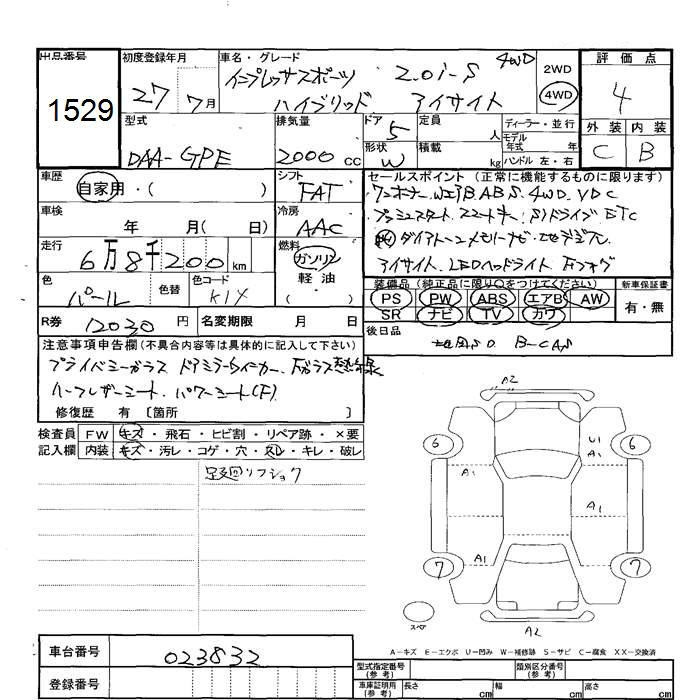 出品番号
1529
初度登録年月
27 7月
車名・グレード
インプレッサスポーツ 2.0i-S 4WD
ハイブリッド アイサイト
2WD
4WD
評価点
4
外装 内装
C B
型式
DAA-GPE
排気量
2000 cc
ドア 5
形状 W
定員 人
積載 kg
ディーラー・並行
モデル年式 年
ハンドル 左・右
車歴
自家用・( )
シフト
FAT
車検
年 月( 日)
冷房
AAC
走行
6万8千200 km
燃料
ガソリン
軽油
色
パール
色替
色コード
K1X
R券 12030 円
名変期限 月 日
セールスポイント(正常に機能するものに限ります)
ワンオーナー.WエアB.ABS.4WD.VDC
プッシュスタート.スマートキー.SIドライブ ETC
ダイアトーンメモリーナビ.地デジ
アイサイト.LEDヘッドライト.Fフォグ
装備品(純正品に限り○をつけてください)
PS PW ABS エアB AW
SR ナビ TV カワ
新車保証書
有・無
後日品
B-CAS
注意事項申告欄(不具合内容等は具体的に記入して下さい)
プライバシーガラス ドアミラーウィンカー.Fガラス熱線
ハーフレザーシート.パワーシート(F)
修復歴 有 〔箇所 〕
検査員 FW キズ・飛石・ヒビ割・リペア跡・×要
記入欄 内装 キズ・汚レ・コゲ・穴・スレ・キレ・破レ
足廻リフショク
A2
6 U1 6
A1 A1
A1
7 A1 7
スペア
A2
A-キズ E-エクボ U-凹み W-補修跡 S-サビ C-腐食 XX-交換済
車台番号
023832
登録番号
型式指定番号(参考)
類別区分番号(参考)
車庫証明用(参考) 長さ cm 幅 cm 高さ cm